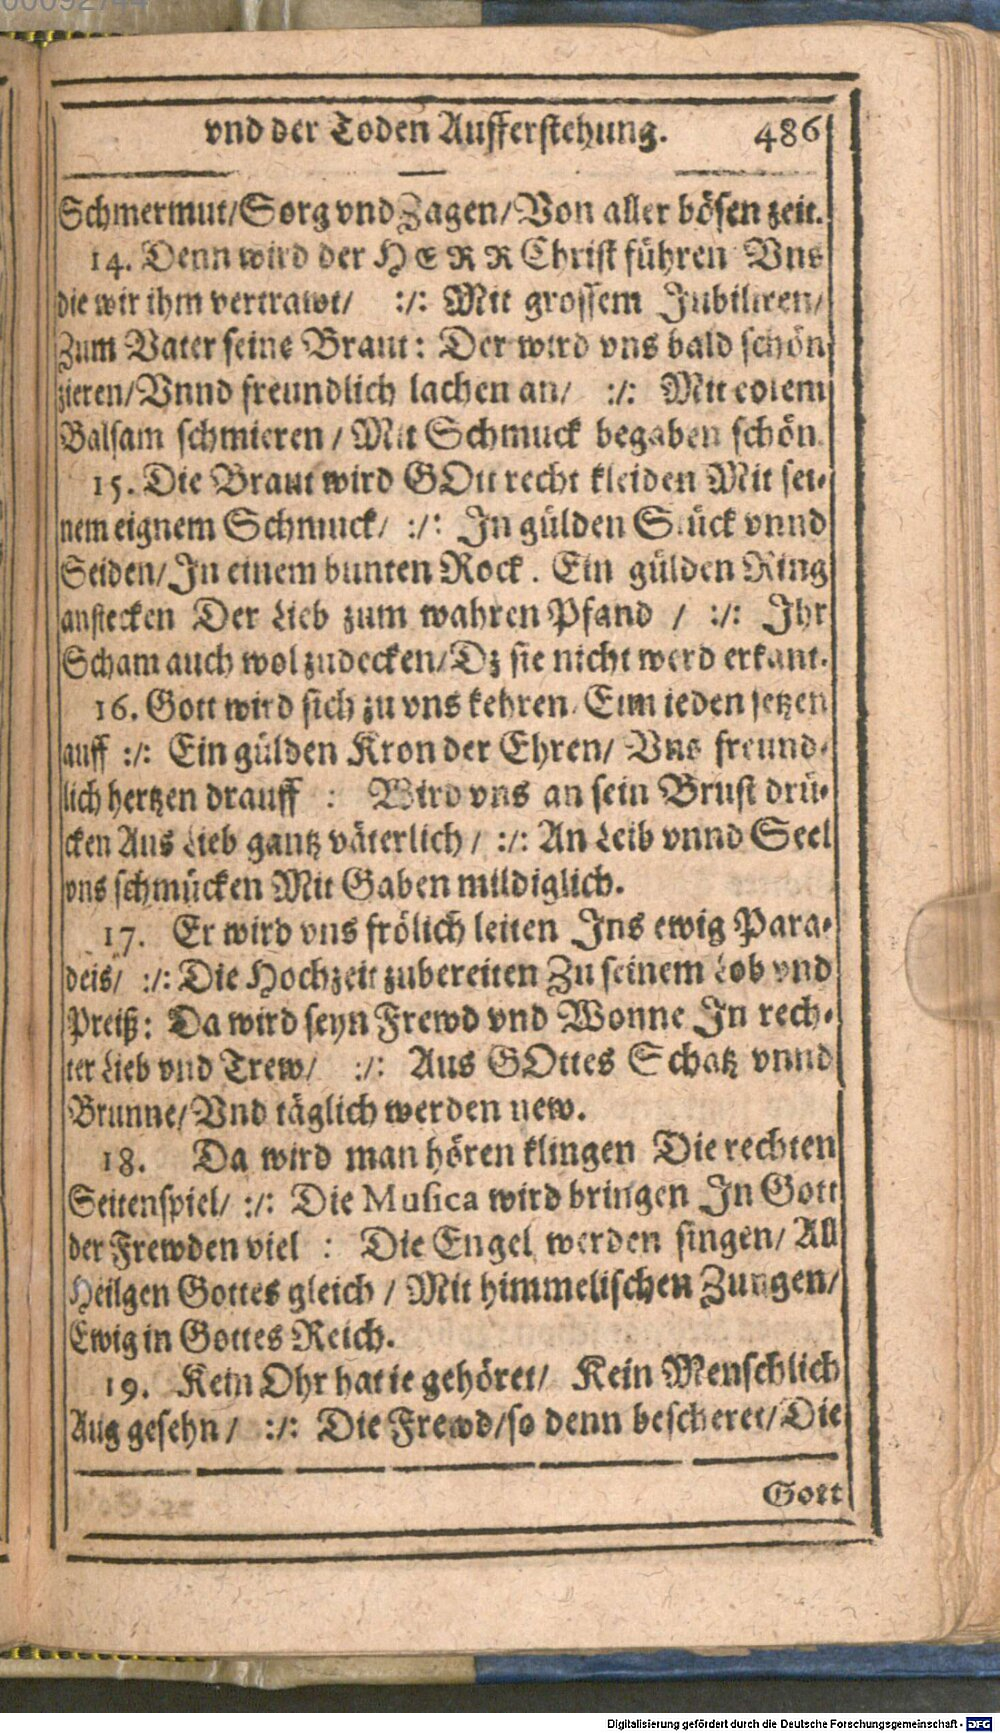 00092744
vnd der Toden Aufferstehung. 486
Schmermut/Sorg vnd Zagen/Von aller bösen zeit.
14. Denn wird der HERR Christ führen Vns
die wir ihm vertrawt/ :/: Mit grossem Jubiliren/
Zum Vater seine Braut: Der wird vns bald schön
zieren/Vnnd freundlich lachen an/ :/: Mit edlem
Balsam schmieren / Mit Schmuck begaben schön.
15. Die Braut wird GOtt recht kleiden Mit sei-
nem eignem Schmuck/ :/: In gülden Stück vnnd
Seiden/In einem bunten Rock. Ein gülden Ring
anstecken Der Lieb zum wahren Pfand / :/: Ihr
Scham auch wol zudecken/Dz sie nicht werd erkant.
16. Gott wird sich zu vns kehren, Eim ieden setzen
auff :/: Ein gülden Kron der Ehren/ Vns freund-
lich hertzen drauff : Wird vns an sein Brust drü-
cken Aus Lieb gantz väterlich / :/: An Leib vnnd Seel
vns schmücken Mit Gaben mildiglich.
17. Er wird vns frölich leiten Ins ewig Para-
deis/ :/: Die Hochzeit zubereiten Zu seinem Lob vnd
Preiß: Da wird seyn Frewd vnd Wonne In rech-
ter Lieb vnd Trew/ :/: Aus GOttes Schatz vnnd
Brunne/Vnd täglich werden new.
18. Da wird man hören klingen Die rechten
Seitenspiel/ :/: Die Musica wird bringen In Gott
der Frewden viel : Die Engel werden singen/ All
Heilgen Gottes gleich / Mit himmelischen Zungen/
Ewig in Gottes Reich.
19. Kein Ohr hat ie gehöret/ Kein Menschlich
Aug gesehn / :/: Die Frewd/so denn bescheret/Die
Gott
Digitalisierung gefördert durch die Deutsche Forschungsgemeinschaft - DFG